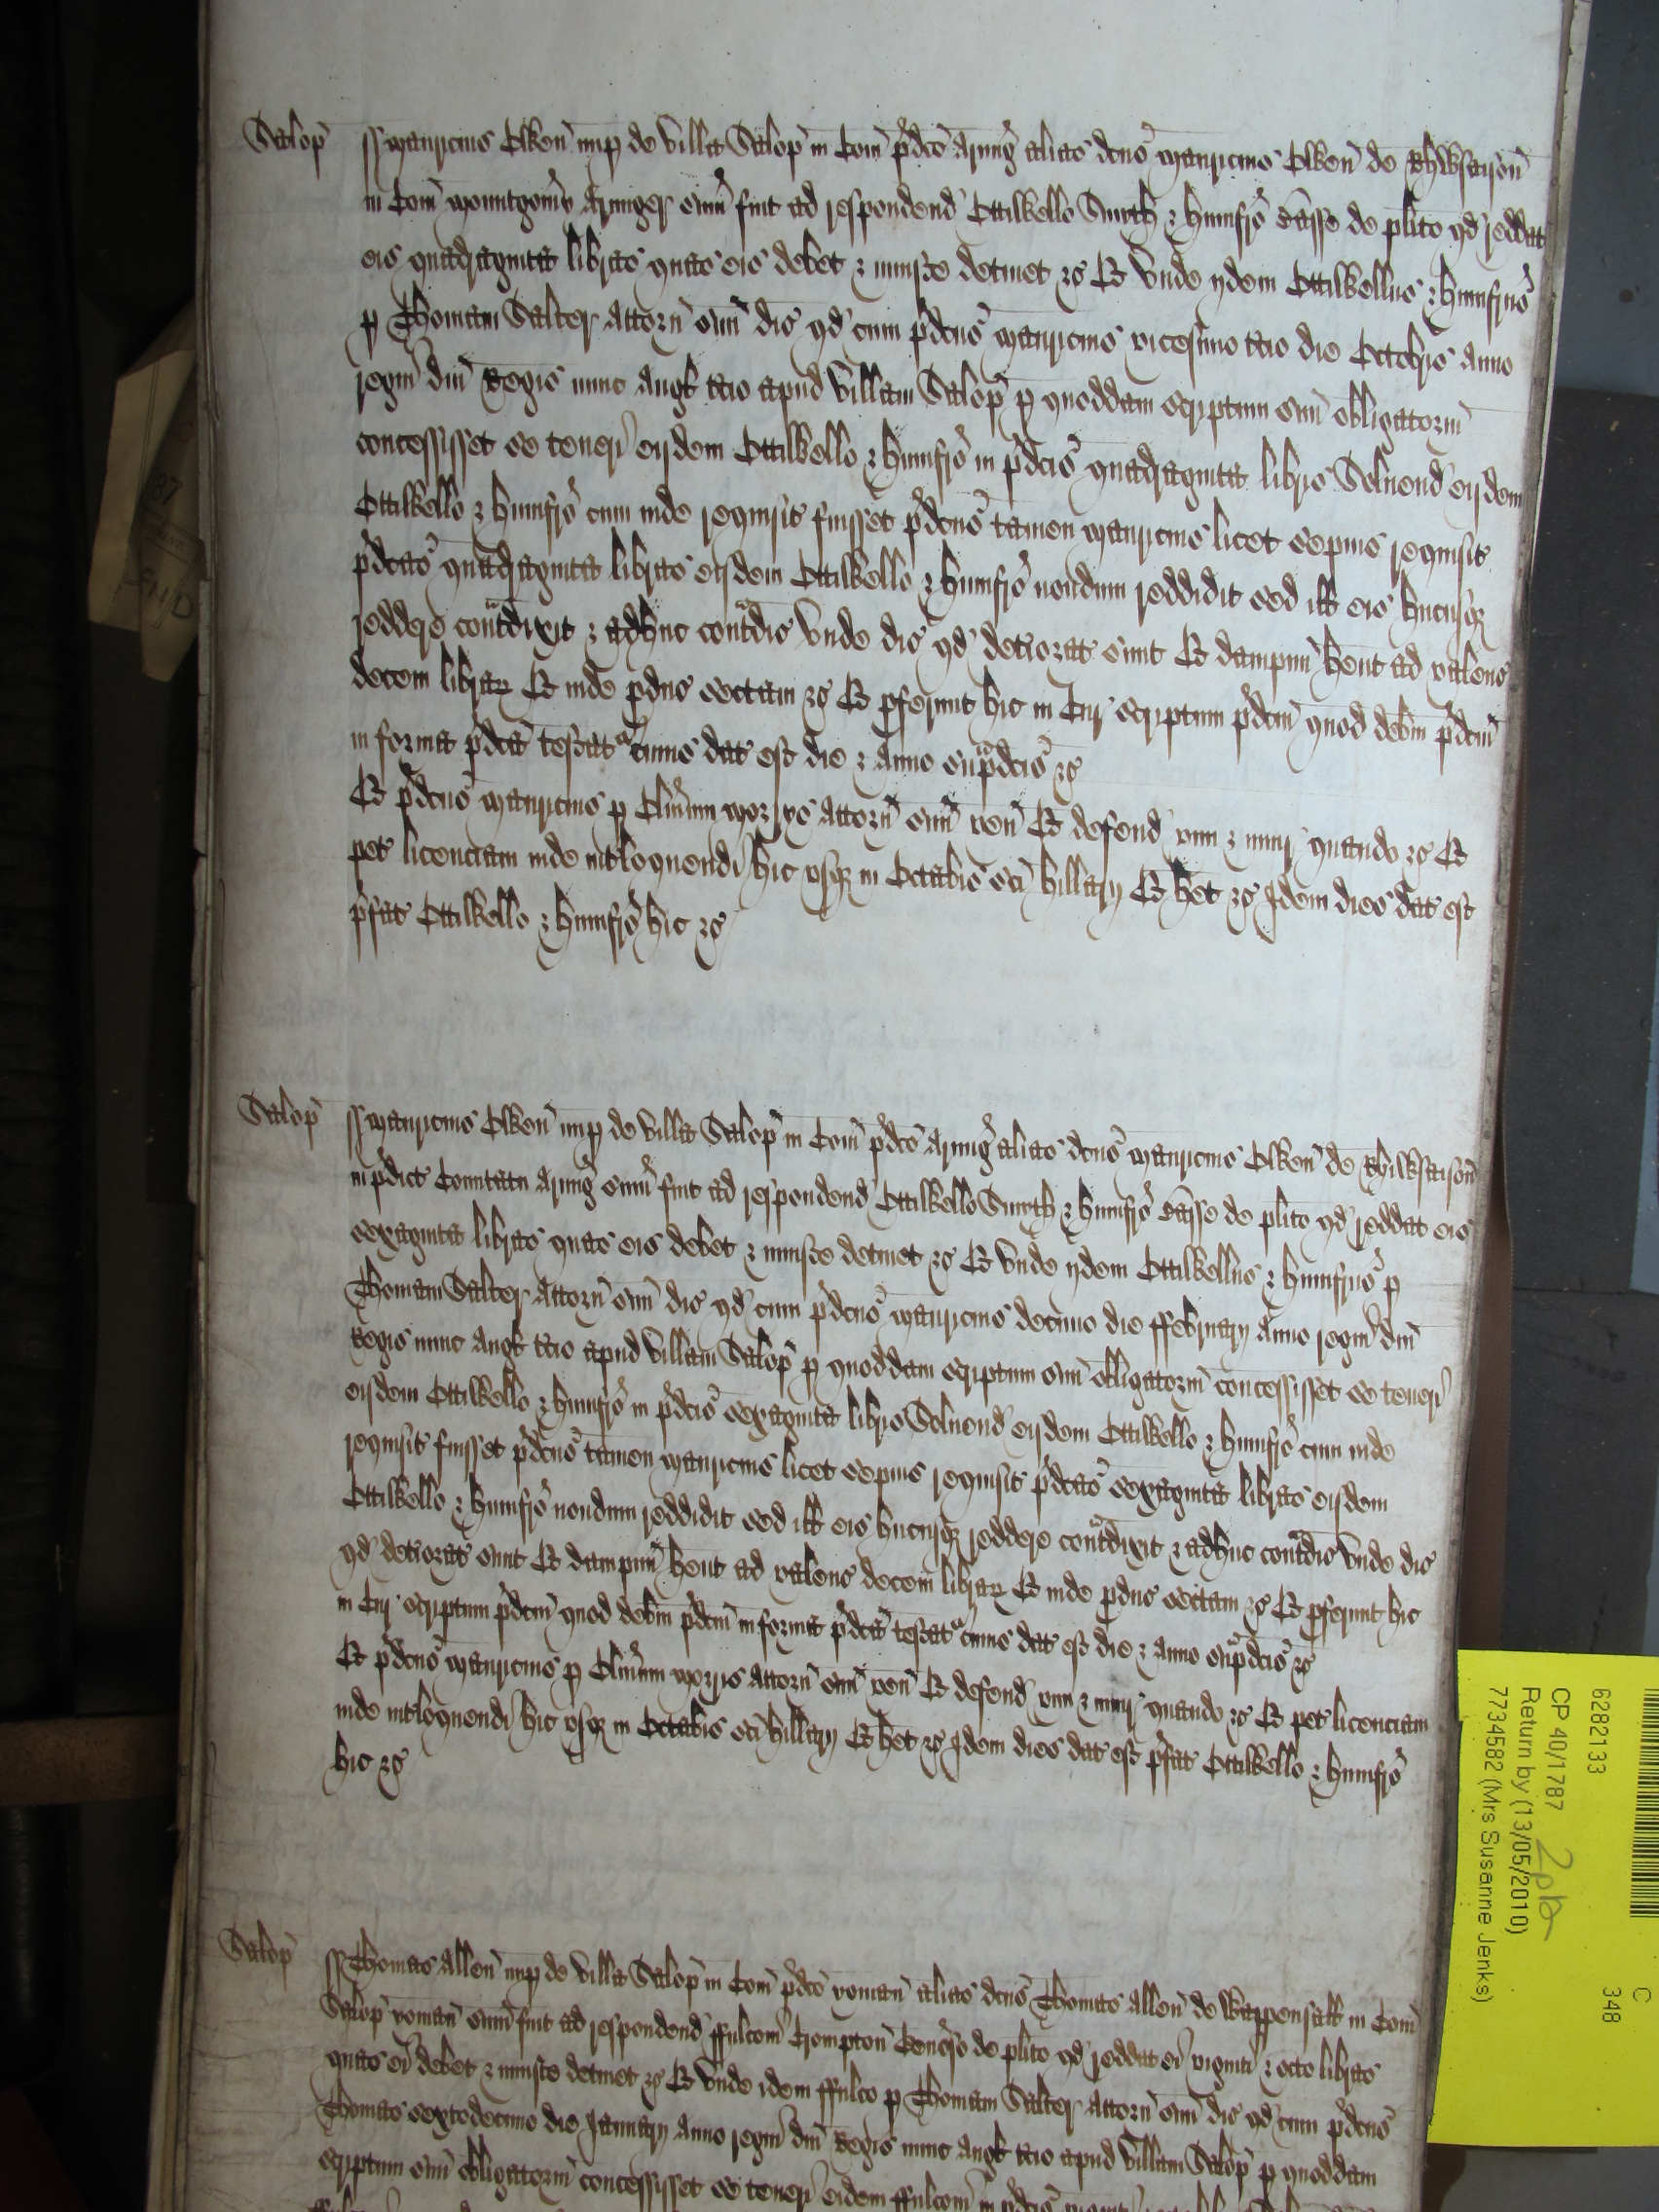 Salop ss Mauricius Owen nup de villa Salop in Com pdco Armig alias dcus Mauricius Owen de
in Com Mountgomy Armiger sum fuit ad respondend Ottiwello Smyth & Humfro Basse de plito qd reddat
eis quadraginta libras quas eis debet & iniuste detinet &c Et unde ijdem Ottiwellus & Humfrus
p Thomam Salter Attorn suu dic qd cum pdcus Mauricius vicesimo tcio die Octobris anno
regni dni Regis nunc Angl tcio apud villam Salop p quoddam scriptum suu obligatoriu
concessisset se teneri eisdem Ottiwello & Humfro in pdcis quadraginta libris Solvend eisdem
Ottiwello & Humfro cum inde requisit fuisset pdcus tamen Mauricius licet sepius requisit
pdcas quadraginta libras eisdem Ottiwello & Humfro nondum reddidit sed ill eis hucusq
reddere contradixit & adhuc contradic unde dic qd deteriorat sunt Et dampnu hent ad valenc
decem librar Et inde pduc sectam &c Et pferunt hic in Cur scriptum pdcm quod debm pdcm
in forma pdca testat cuius dat est die & anno supadcis &c
Et pdcus Mauricius p Oliverum Morrys Attorn suu ven Et defend vim & iniur quando &c Et
pet licenciam inde intloquendi hic usq in Octabis sci Hillarij Et het &c Idem dies dat est
pfat Ottiwello & Humfro hic &c
Salop ss Mauricius Owen nup de villa Salop in Com pdco Armig alias dcus Mauricius Owen de
in pdict Comitatu Armig sum fuit ad respondend Ottiwello Smyth & Humfro Basse de plito qd reddat eis
sexaginta libras quas eis debet & iniuste detinet &c Et unde ijdem Ottiwellus & Humfrus p
Thomam Salter Attorn suu dic qd cum pdcus Mauricius decimo die ffebruarij anno regni dni
Regis nunc Angl tcio apud villam Salop p quoddam scriptum suu obligatoriu concessisset se teneri
eisdem Ottiwello & Humfro in pdcis sexaginta libris Solvend eisdem Ottiwello & Humfro cum inde
requisit fuisset pdcus tamen Mauricius licet sepius requisit pdcas sexaginta libras eisdem
Ottiwello & Humfro nondum reddidit sed ill eis hucusq reddere contradixit & adhuc contradic unde dic
qd deteriorat sunt Et dampnu hent ad valenc decem librar Et inde pduc sectam &c Et pferunt hic
in Cur scriptum pdcm quod debm pdcm in forma pdca testat cuius dat est die & anno supadcis &c
Et pdcus Mauricius p Oliverum Morris Attorn suu ven Et defend vim & iniur quando &c Et pet licenciam
inde intloquendi hic usq in Octabis sci Hillarij Et het &c Idem dies dat est pfat Ottiwello & Humfro
hic &c
Salop ss Thomas Allen nup de villa Salop in Com pdco yoman alias dcus Thomas Allen de Wappensall in Com
Salop yoman sum fuit ad respondend ffulconi Crompton de plito qd reddat ei viginti & octo libras
quas ei debet & iniuste detinet &c Et unde idem ffulco p Thomam Salter Attorn suu dic qd cum pdcus
Thomas sextodecimo die Januarij anno regni dni Regis nunc Angl tcio apud villam Salop p quoddam
scriptum suu obligatoriu concessisset se teneri eidem ffulconi in pdcis
6282133
CP 40/1787
Return by (13/05/2010)
7734582 (Mrs Susanne Jenks)
C
348